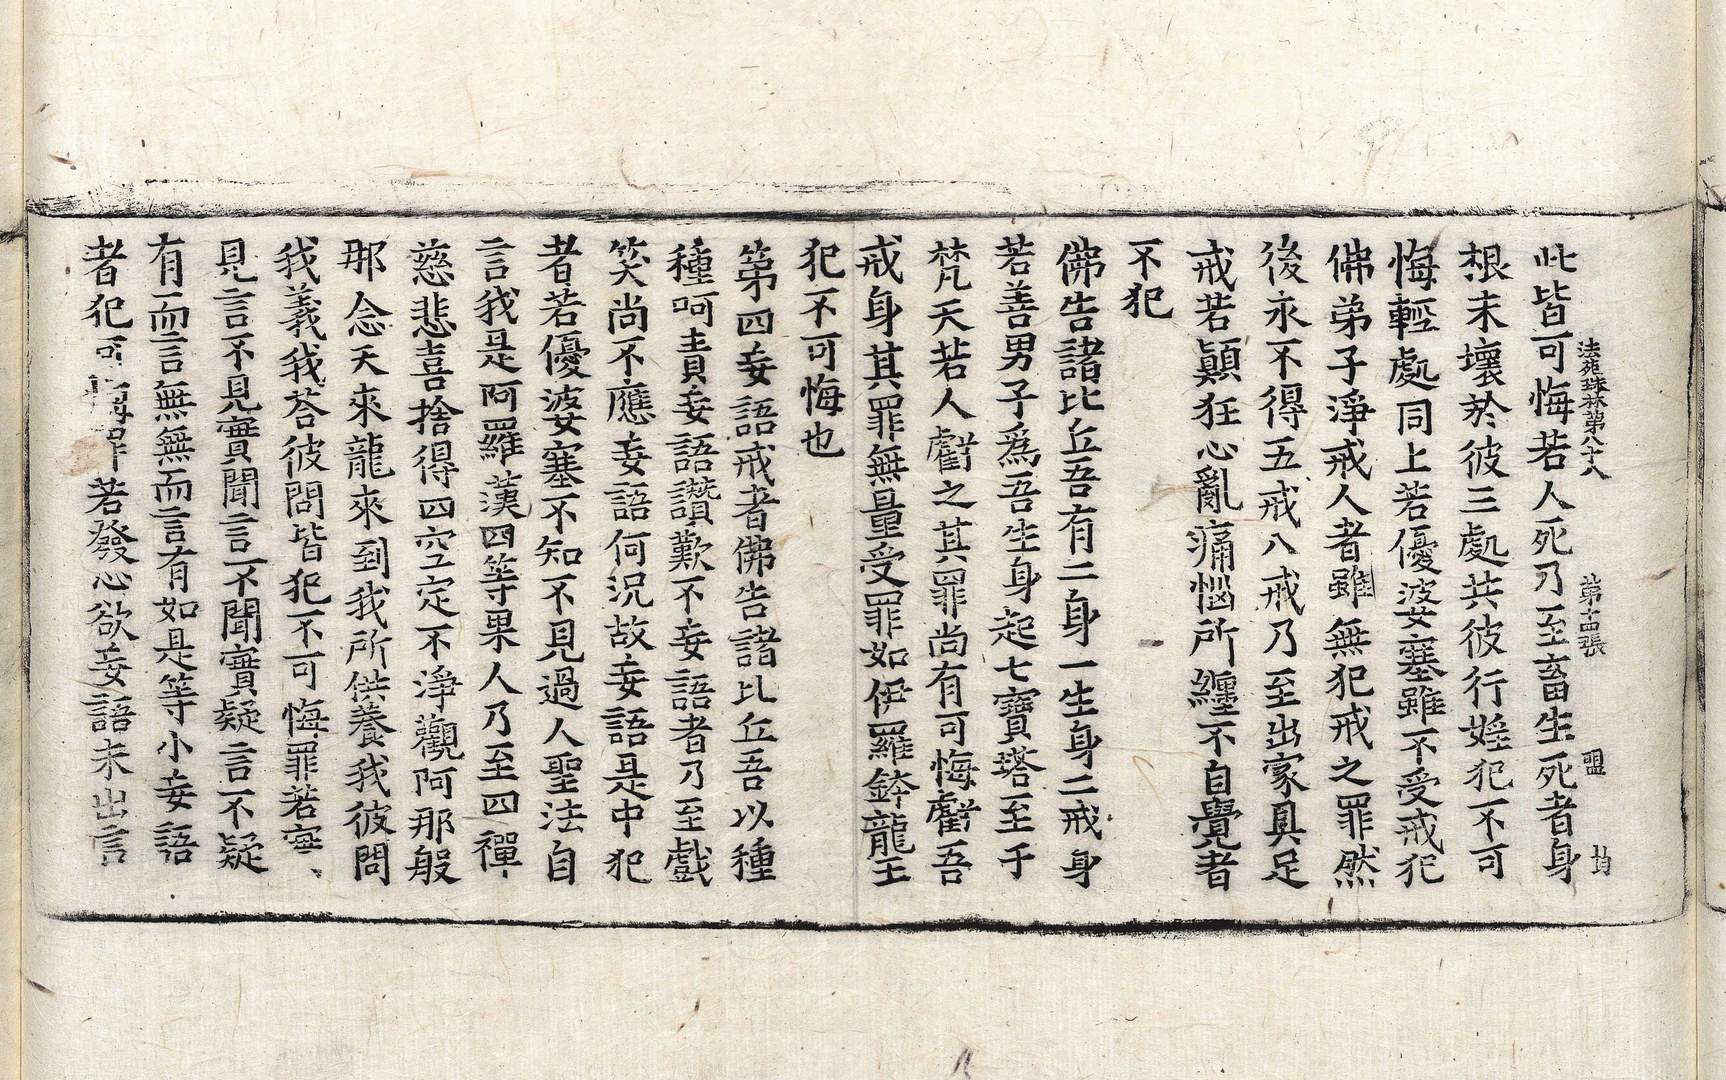 法苑珠林第八十八 第十四張 盟 均
此皆可悔若人死乃至畜生死者身
根未壞於彼三處共彼行婬犯不可
悔輕處同上若優婆塞雖不受戒犯
佛弟子淨戒人者雖無犯戒之罪然
後永不得五戒八戒乃至出家具足
戒若顛狂心亂痛惱所纏不自覺者
不犯
佛告諸比丘吾有二身一生身二戒身
若善男子爲吾生身起七寶塔至于
梵天若人虧之其罪尚有可悔虧吾
戒身其罪無量受罪如伊羅鉢龍王
犯不可悔也
第四妄語戒者佛告諸比丘吾以種
種呵責妄語讚歎不妄語者乃至戲
笑尚不應妄語何況故妄語是中犯
者若優婆塞不知不見過人聖法自
言我是阿羅漢四等果人乃至四禪
慈悲喜捨得四空定不淨觀阿那般
那念天來龍來到我所供養我彼問
我義我荅彼問皆犯不可悔罪若實、
見言不見實聞言不聞實疑言不疑
有而言無無而言有如是等小妄語
者犯可悔罪若發心欲妄語未出言